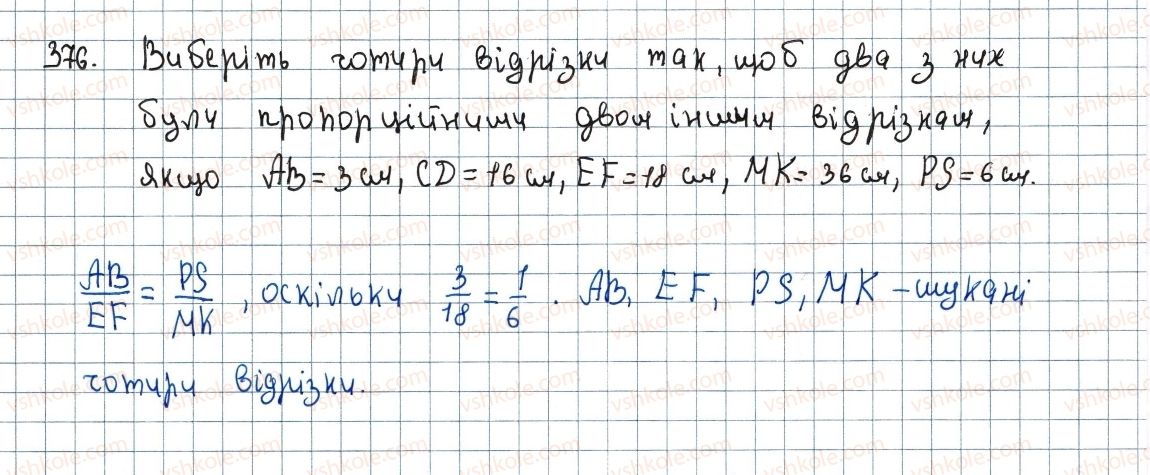 376. Виберіть чотири відрізки так, щоб два з них
були пропорційними двом іншим відрізкам,
якщо AB = 3 см, CD = 16 см, EF = 18 см, MK = 36 см, PS = 6 см.
AB/EF = PS/MK, оскільки 3/18 = 1/6. AB, EF, PS, MK – шукані
чотири відрізки.